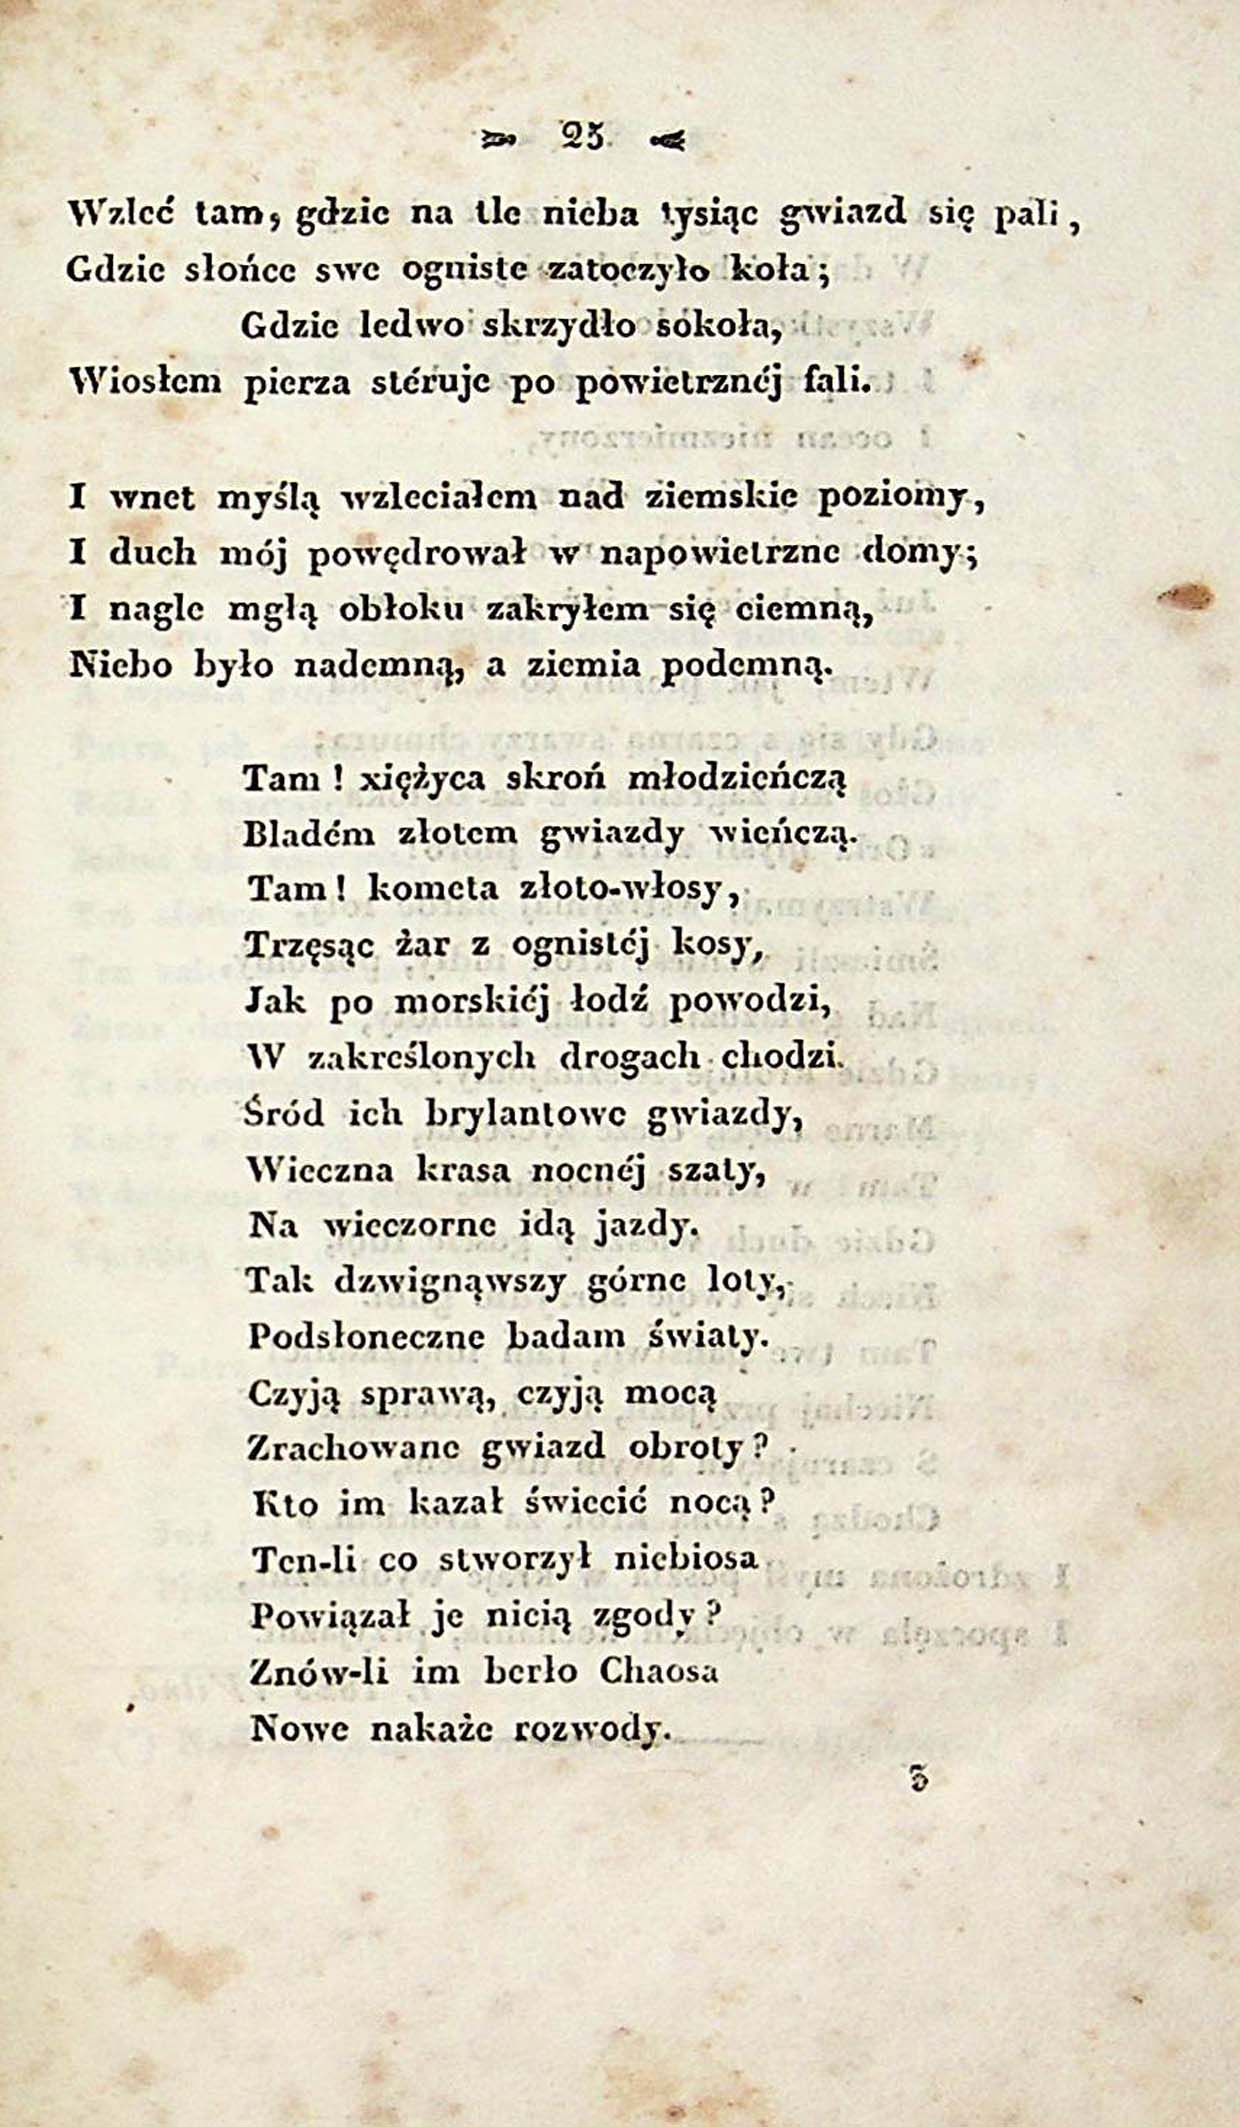 25
Wzleć tam, gdzie na tle nieba tysiąc gwiazd się pali,
Gdzie słońce swe ogniste zatoczyło koła;
Gdzie ledwo skrzydło sokoła,
Wiosłem pierza stéruje po powietrznéj fali.
I wnet myślą wzleciałem nad ziemskie poziomy,
I duch mój powędrował w napowietrzne domy;
I nagle mgłą obłoku zakryłem się ciemną,
Niebo było nademną, a ziemia podemną.
Tam! xiężyca skroń młodzieńczą
Bladém złotem gwiazdy wieńczą.
Tam! kometa złoto-włosy,
Trzęsąc żar z ognistéj kosy,
Jak po morskiéj łodź powodzi,
W zakreślonych drogach chodzi.
Śród ich brylantowe gwiazdy,
Wieczna krasa nocnéj szaty,
Na wieczorne idą jazdy.
Tak dzwignąwszy górne loty,
Podsłoneczne badam światy.
Czyją sprawą, czyją mocą
Zrachowane gwiazd obroty?
Kto im kazał świecić nocą?
Ten-li co stworzył niebiosa
Powiązał je nicią zgody?
Znów-li im berło Chaosa
Nowe nakaże rozwody.
3